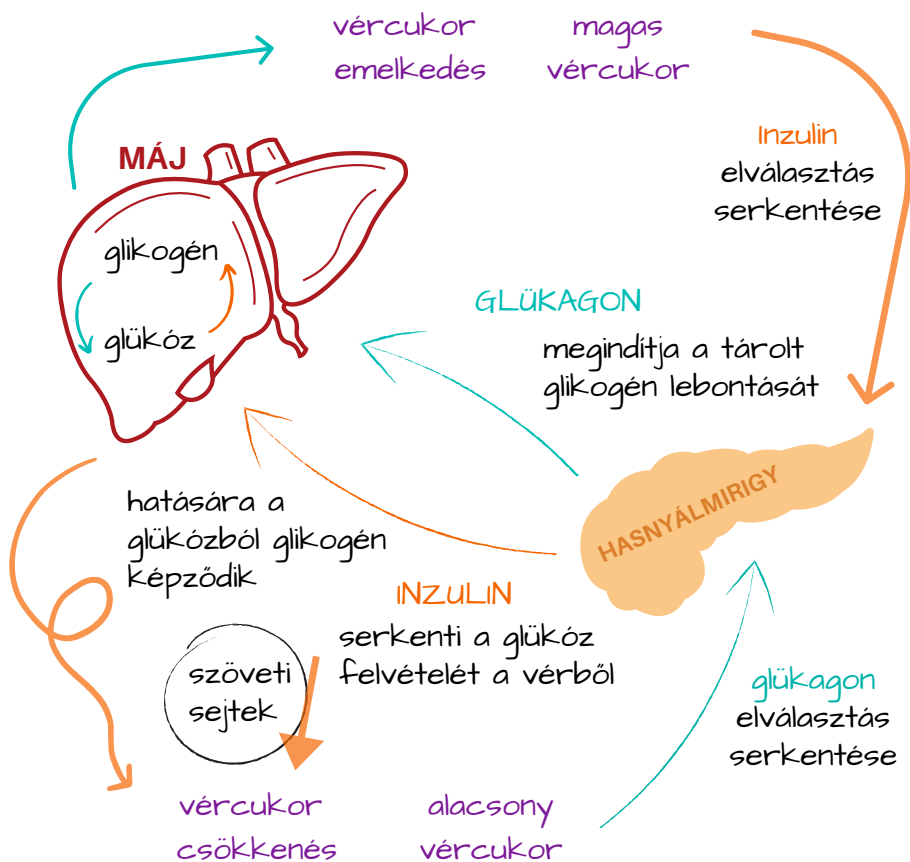 vércukor
emelkedés
magas
vércukor
Inzulin
elválasztás
serkentése
MÁJ
glikogén
glükóz
GLÜKAGON
megindítja a tárolt
glikogén lebontását
HASNYÁLMIRIGY
hatására a
glükózból glikogén
képződik
INZULIN
serkenti a glükóz
felvételét a vérből
szöveti
sejtek
glükagon
elválasztás
serkentése
vércukor
csökkenés
alacsony
vércukor